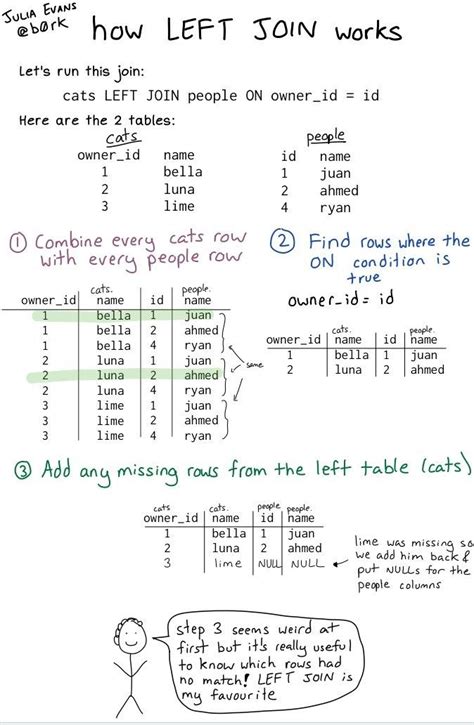 JULIA EVANS
@b0rk
how LEFT JOIN works
Let's run this join:
cats LEFT JOIN people ON owner_id = id
Here are the 2 tables:
cats
owner_id name
1 bella
2 luna
3 lime
people
id name
1 juan
2 ahmed
4 ryan
① Combine every cats row
with every people row
cats. people.
owner_id name id name
1 bella 1 juan
1 bella 2 ahmed
1 bella 4 ryan
2 luna 1 juan
2 luna 2 ahmed
2 luna 4 ryan
3 lime 1 juan
3 lime 2 ahmed
3 lime 4 ryan
same
② Find rows where the
ON condition is
true
owner_id = id
cats. people.
owner_id name id name
1 bella 1 juan
2 luna 2 ahmed
③ Add any missing rows from the left table (cats)
cats cats. people people.
owner_id name id name
1 bella 1 juan
2 luna 2 ahmed
3 lime NULL NULL
lime was missing so
we add him back &
put NULLs for the
people columns
step 3 seems weird at
first but it's really useful
to know which rows had
no match! LEFT JOIN is
my favourite